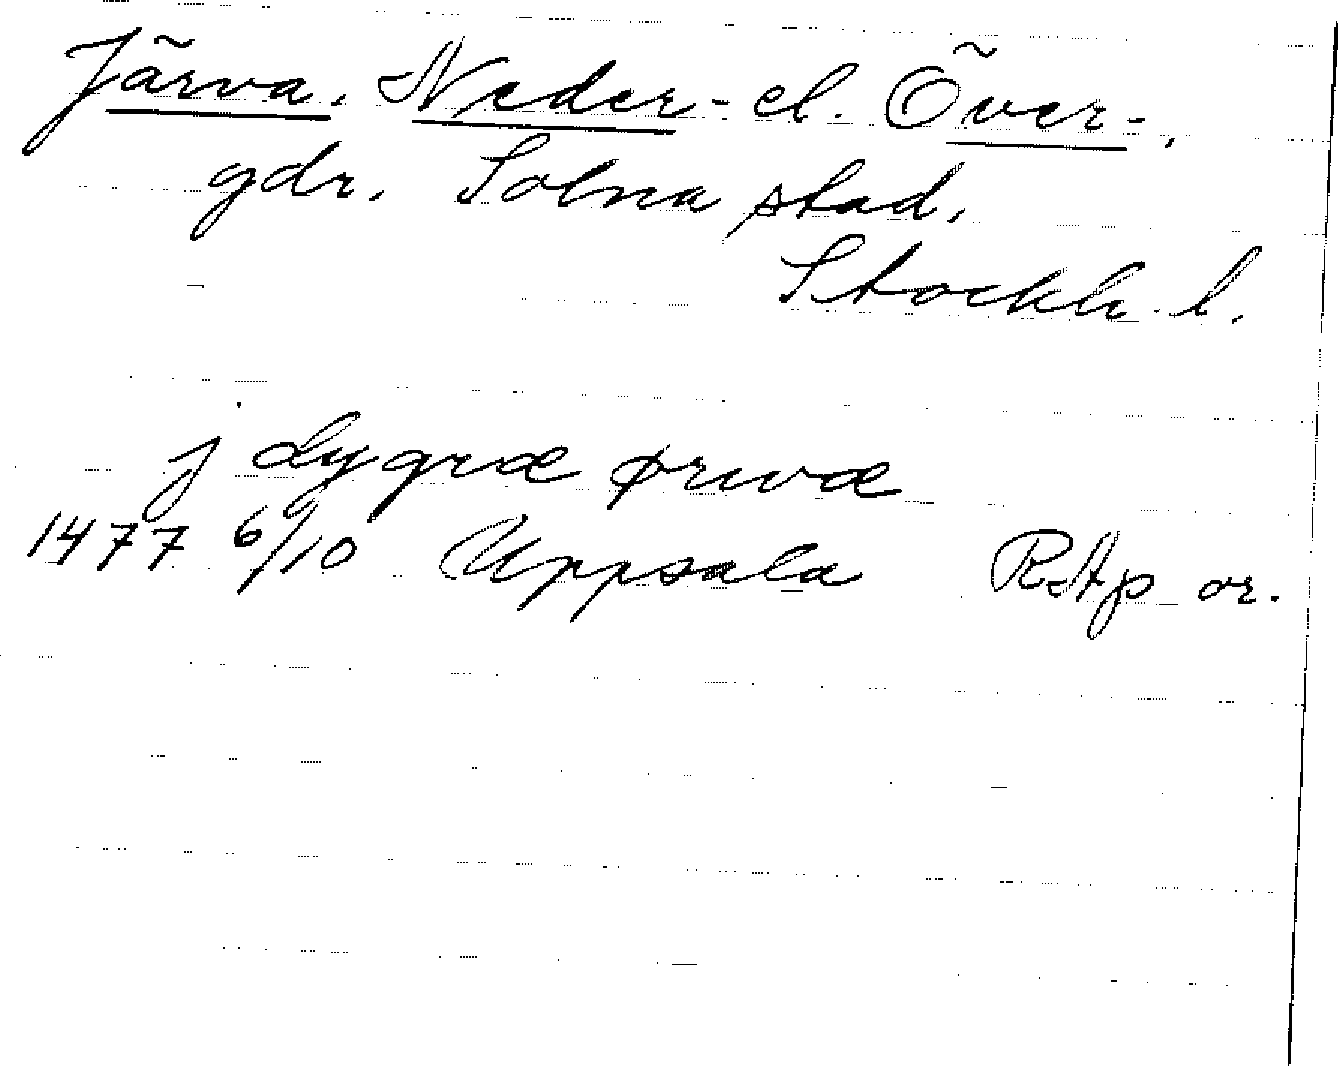 Järva, Neder- el. Över-,
gdr. Solna stad,
Stockh. l.
j dygræ ørwæ
1477 6/10 Uppsala RAp or.